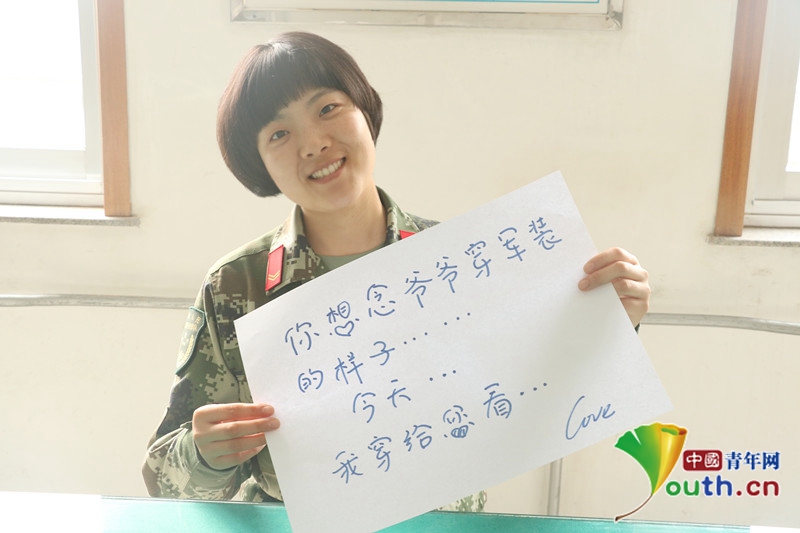 你想念爷爷穿军装
的样子……
今天…
我穿给您看…
Love
中國青年网
Youth.cn